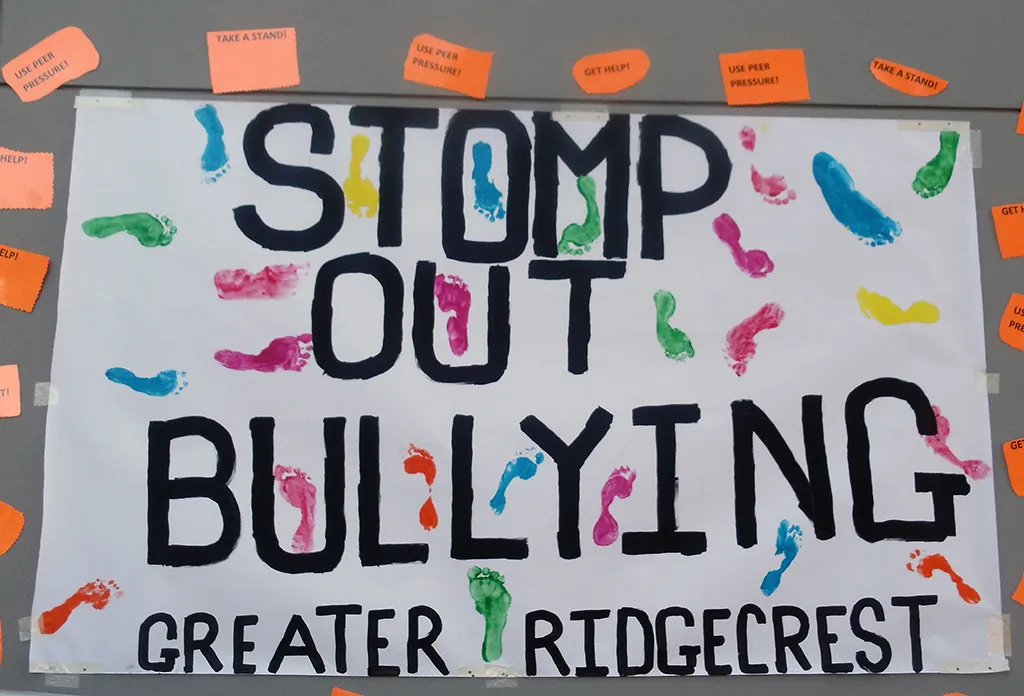 USE PEER
PRESSURE!
TAKE A STAND!
USE PEER
PRESSURE!
GET HELP!
USE PEER
PRESSURE!
TAKE A STAND!
HELP!
STOMP
OUT
BULLYING
GREATER RIDGECREST
GET